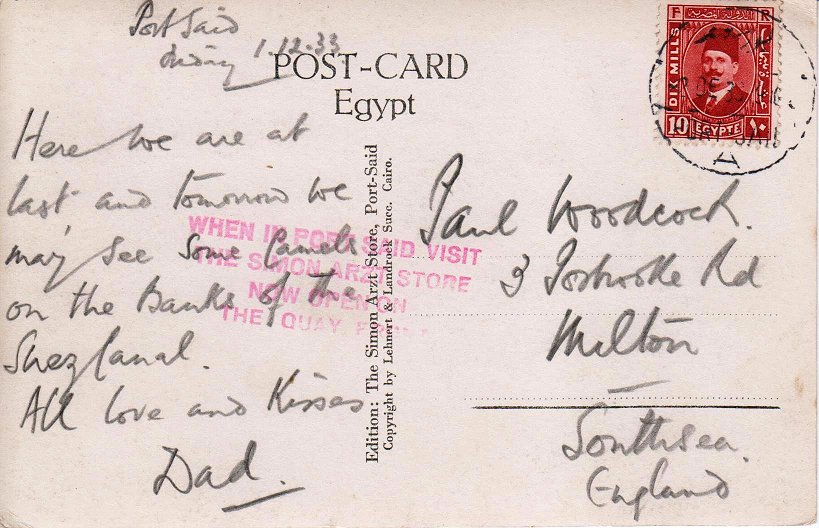 Port Said
Friday 1.12.33
POST-CARD
Egypt
Here we are at
last and tomorrow we
may see some Camels
on the Banks of the
Suez Canal.
All love and Kisses
Dad.
WHEN IN PORT SAID VISIT
THE SIMON ARZT STORE
NOW OPEN ON
THE QUAY
Edition: The Simon Arzt Store, Port-Said
Copyright by Lehnert & Landrock Succ. Cairo.
F R
DIX MILLS
10 EGYPTE ١٠
A
Paul Woodcock.
3 Rd
Milton
Southsea.
England